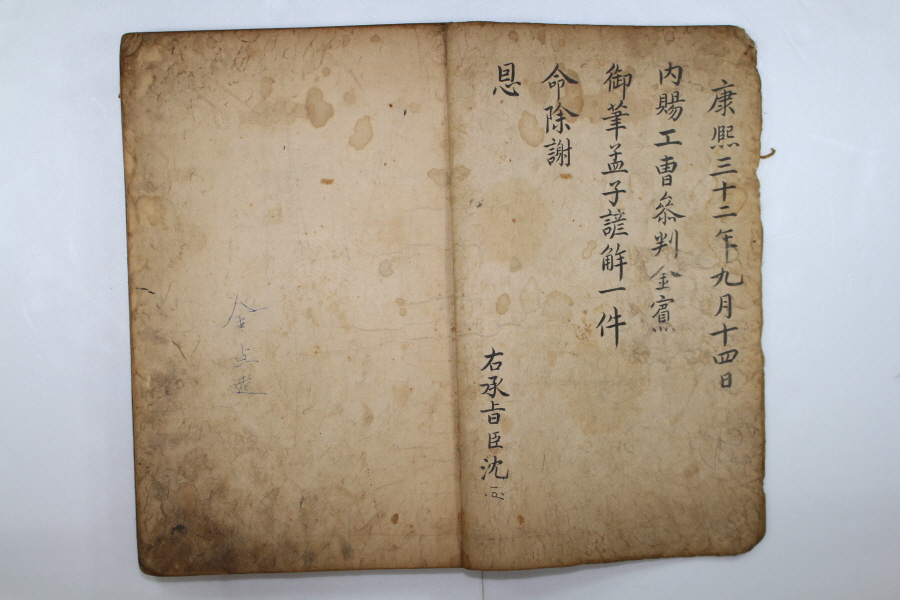 康熙三十二年九月十四日
內賜工曹參判金賓
御筆孟子諺解一件
命除謝
恩
右承旨臣沈